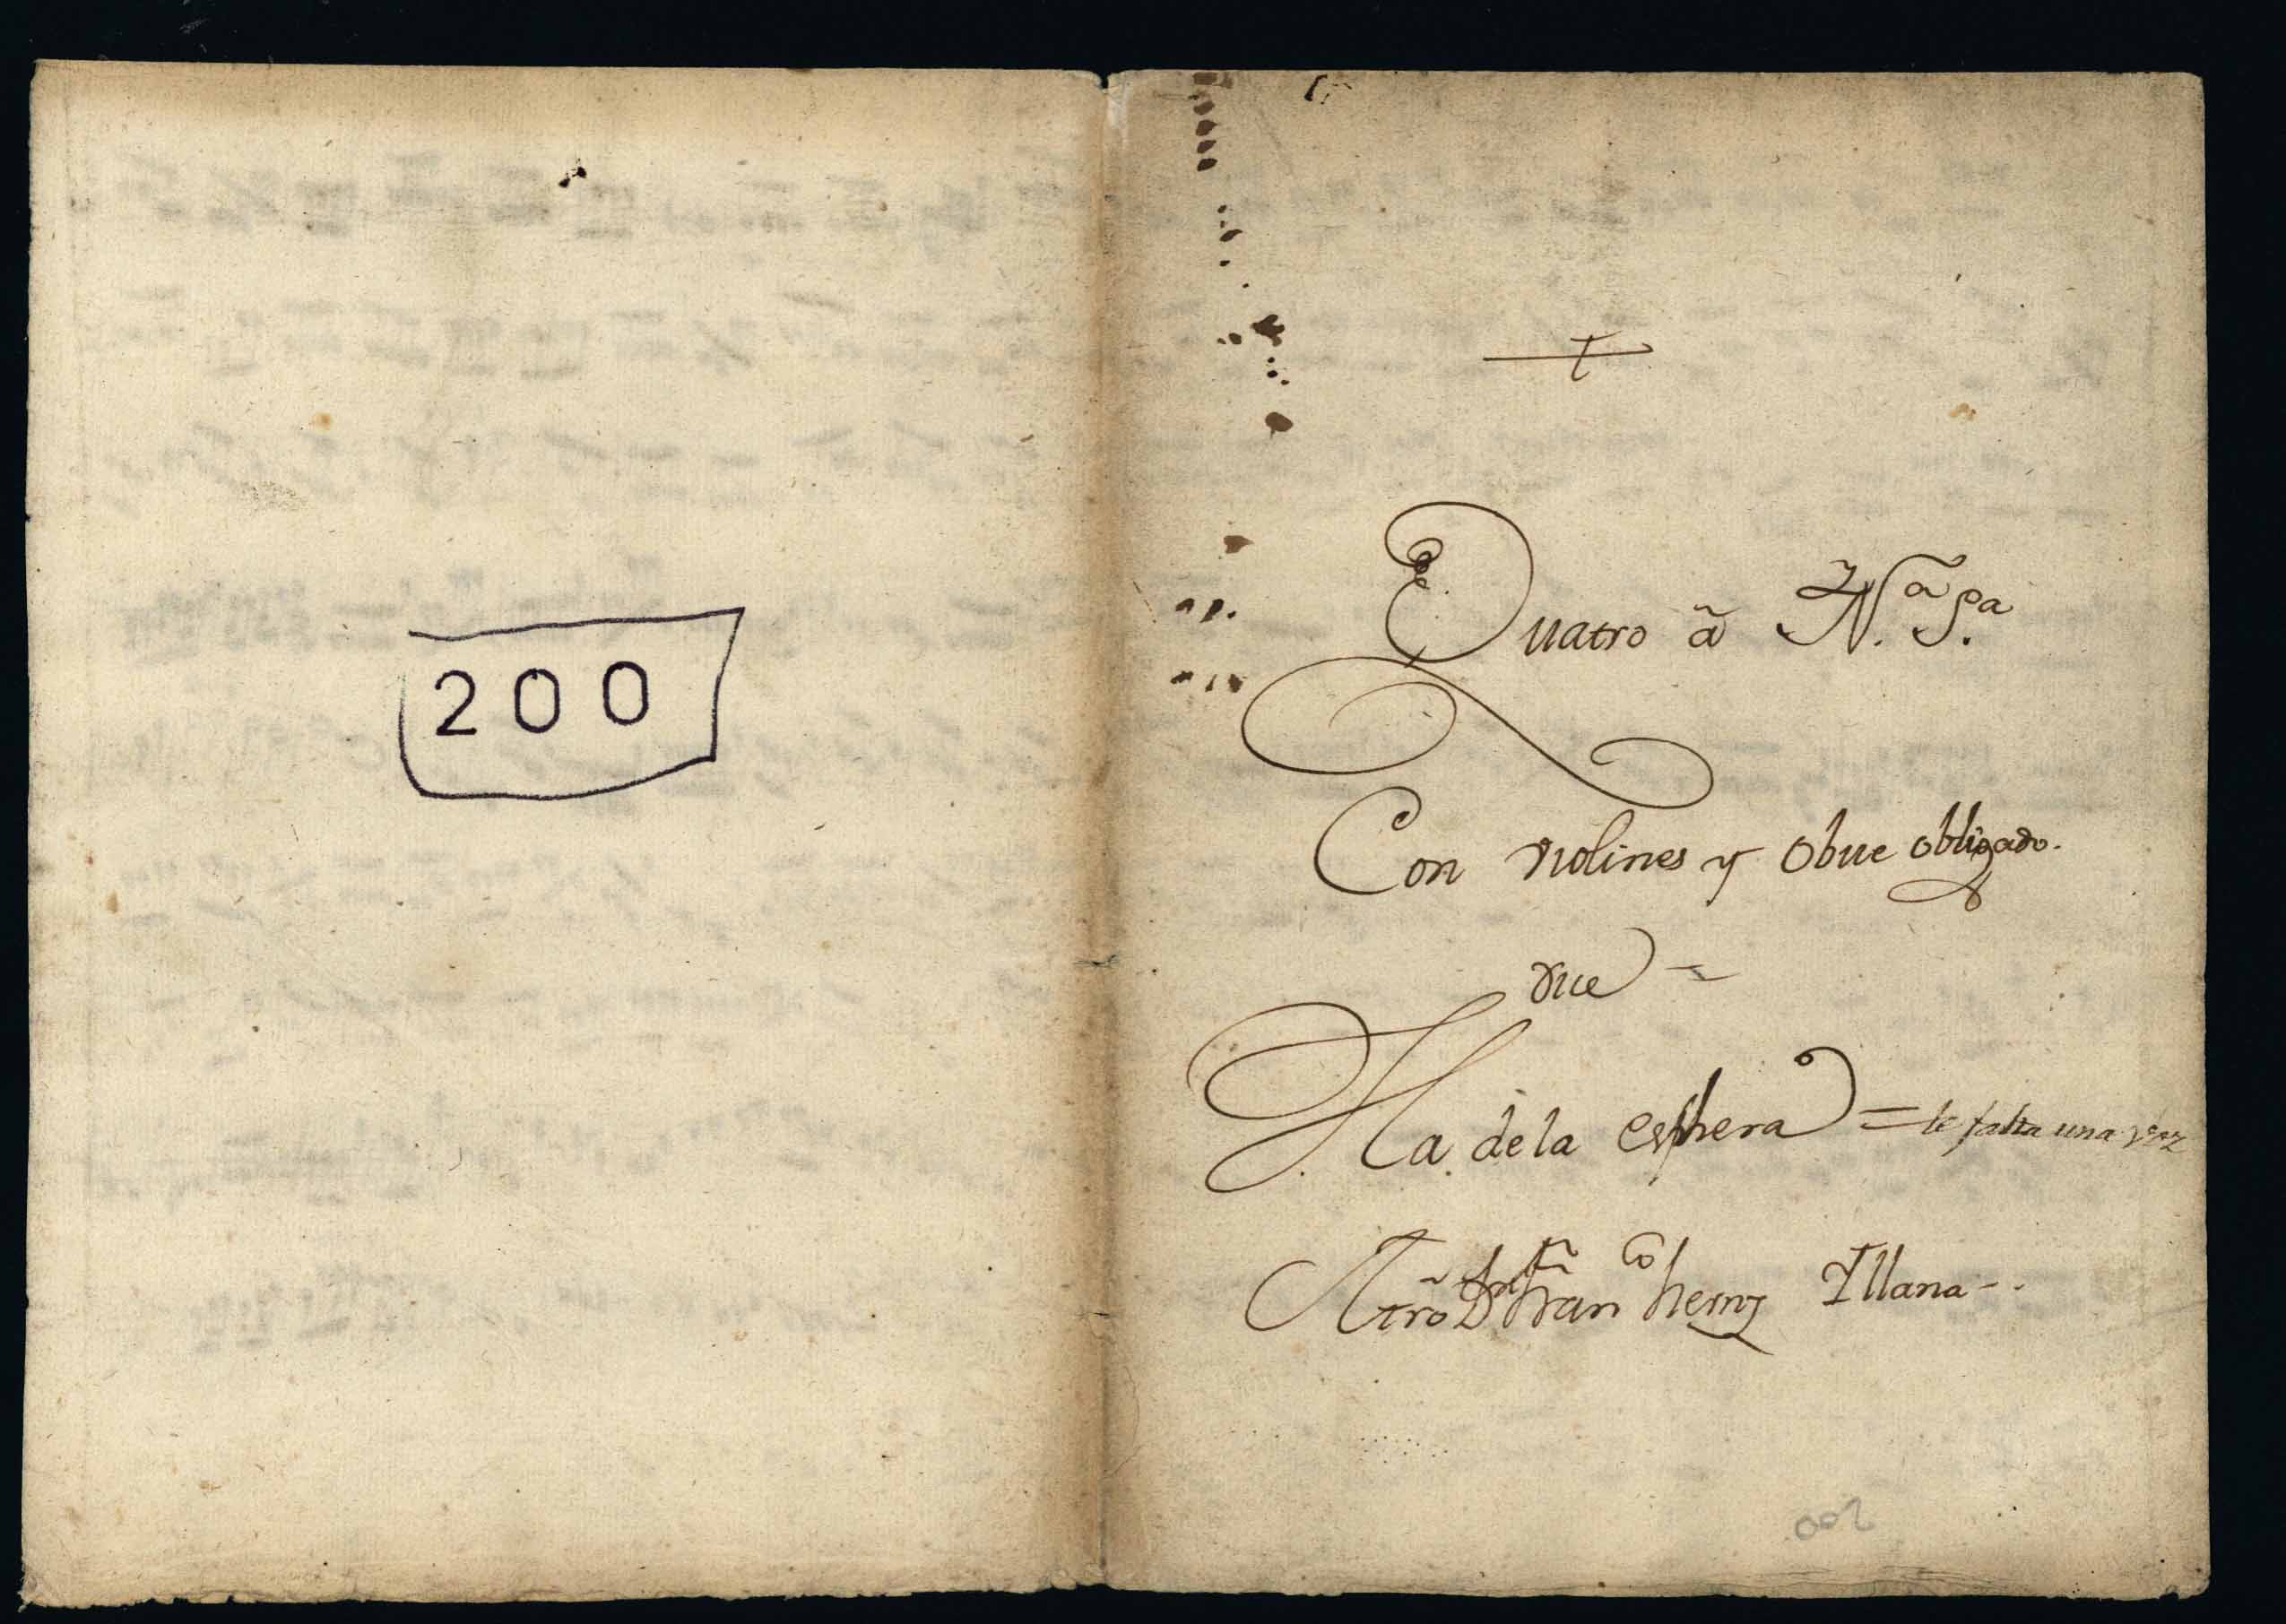 200
Quatro â N.ª S.ª
Con violines y Obue obligado.
Que =
Ha de la esphera = le falta una voz
Mrõ Dn Fran co hernz Illana - .
200